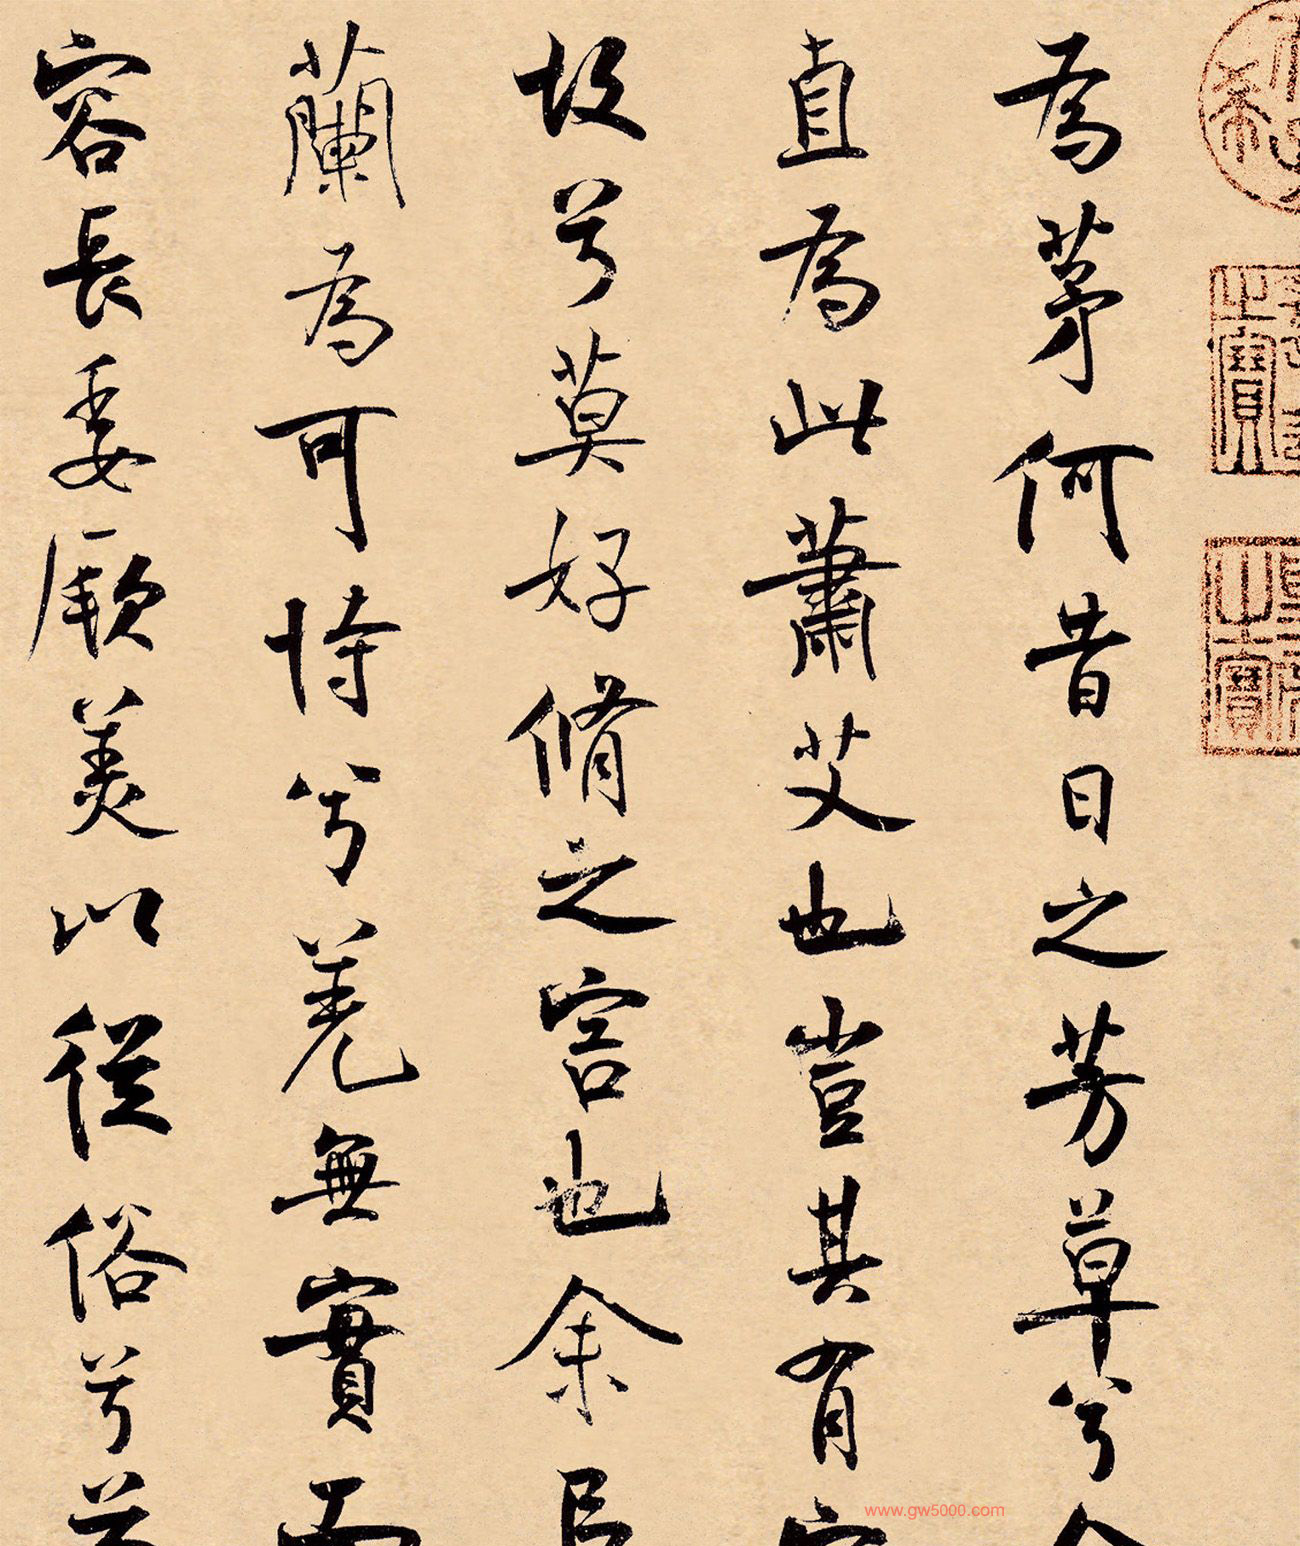 為茅何昔日之芳草兮今
直為此蕭艾也豈其有
故兮莫好脩之害也余
蘭為可恃兮羌無實而
容長委厥美以從俗兮
之寶
www.gw5000.com